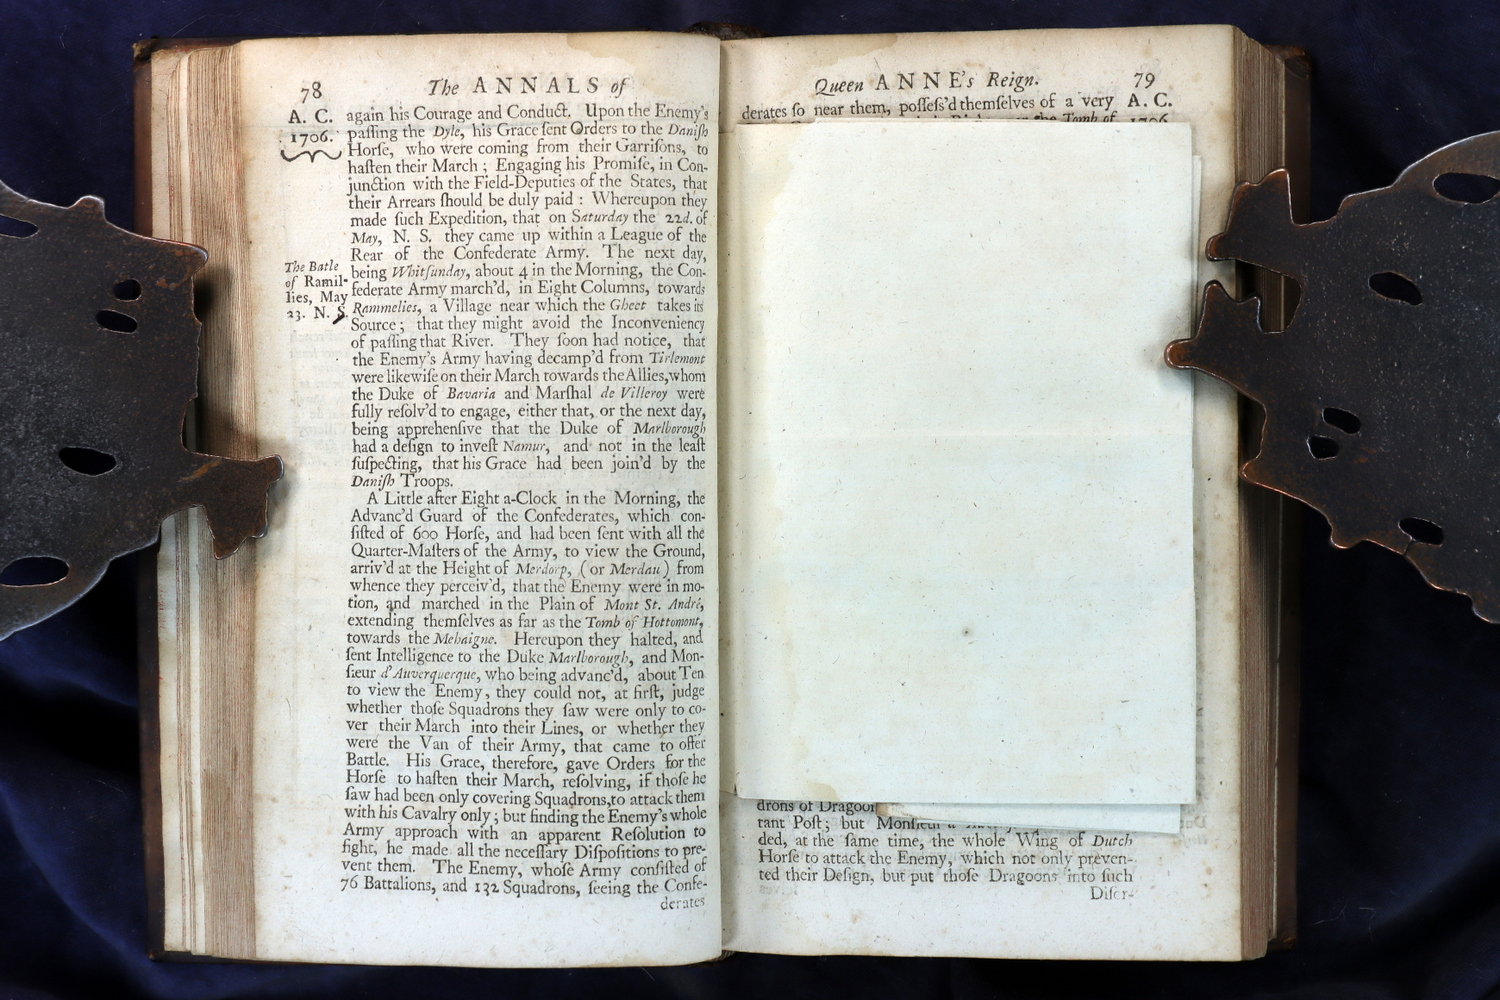 78 The ANNALS of
A. C.
1706.
The Batle
of Ramil-
lies, May
23. N. S.
again his Courage and Conduct. Upon the Enemy's
paſſing the Dyle, his Grace ſent Orders to the Daniſh
Horſe, who were coming from their Garriſons, to
haſten their March ; Engaging his Promiſe, in Con-
junction with the Field-Deputies of the States, that
their Arrears ſhould be duly paid : Whereupon they
made ſuch Expedition, that on Saturday the 22d. of
May, N. S. they came up within a League of the
Rear of the Confederate Army. The next day,
being Whitſunday, about 4 in the Morning, the Con-
federate Army march'd, in Eight Columns, towards
Rammelies, a Village near which the Gheet takes its
Source ; that they might avoid the Inconveniency
of paſſing that River. They ſoon had notice, that
the Enemy's Army having decamp'd from Tirlemont
were likewiſe on their March towards the Allies, whom
the Duke of Bavaria and Marſhal de Villeroy were
fully reſolv'd to engage, either that, or the next day,
being apprehenſive that the Duke of Marlborough
had a deſign to inveſt Namur, and not in the leaſt
ſuſpecting, that his Grace had been join'd by the
Daniſh Troops.
A Little after Eight a-Clock in the Morning, the
Advanc'd Guard of the Confederates, which con-
ſiſted of 600 Horſe, and had been ſent with all the
Quarter-Maſters of the Army, to view the Ground,
arriv'd at the Height of Merdorp, (or Merdau) from
whence they perceiv'd, that the Enemy were in mo-
tion, and marched in the Plain of Mont St. André,
extending themſelves as far as the Tomb of Hottomont,
towards the Mehaigne. Hereupon they halted, and
ſent Intelligence to the Duke Marlborough, and Mon-
ſieur d'Auverquerque, who being advanc'd, about Ten
to view the Enemy, they could not, at firſt, judge
whether thoſe Squadrons they ſaw were only to co-
ver their March into their Lines, or whether they
were the Van of their Army, that came to offer
Battle. His Grace, therefore, gave Orders for the
Horſe to haſten their March, reſolving, if thoſe he
ſaw had been only covering Squadrons, to attack them
with his Cavalry only ; but finding the Enemy's whole
Army approach with an apparent Reſolution to
fight, he made all the neceſſary Diſpoſitions to pre-
vent them. The Enemy, whoſe Army conſiſted of
76 Battalions, and 132 Squadrons, ſeeing the Confe-
derates
Queen ANNE's Reign. 79
A. C.
1706
derates ſo near them, poſſeſs'd themſelves of a very
the Tomb of
drons of Dragoon
tant Poſt ; but Monſieur
ded, at the ſame time, the whole Wing of Dutch
Horſe to attack the Enemy, which not only preven-
ted their Deſign, but put thoſe Dragoons into ſuch
Diſor-